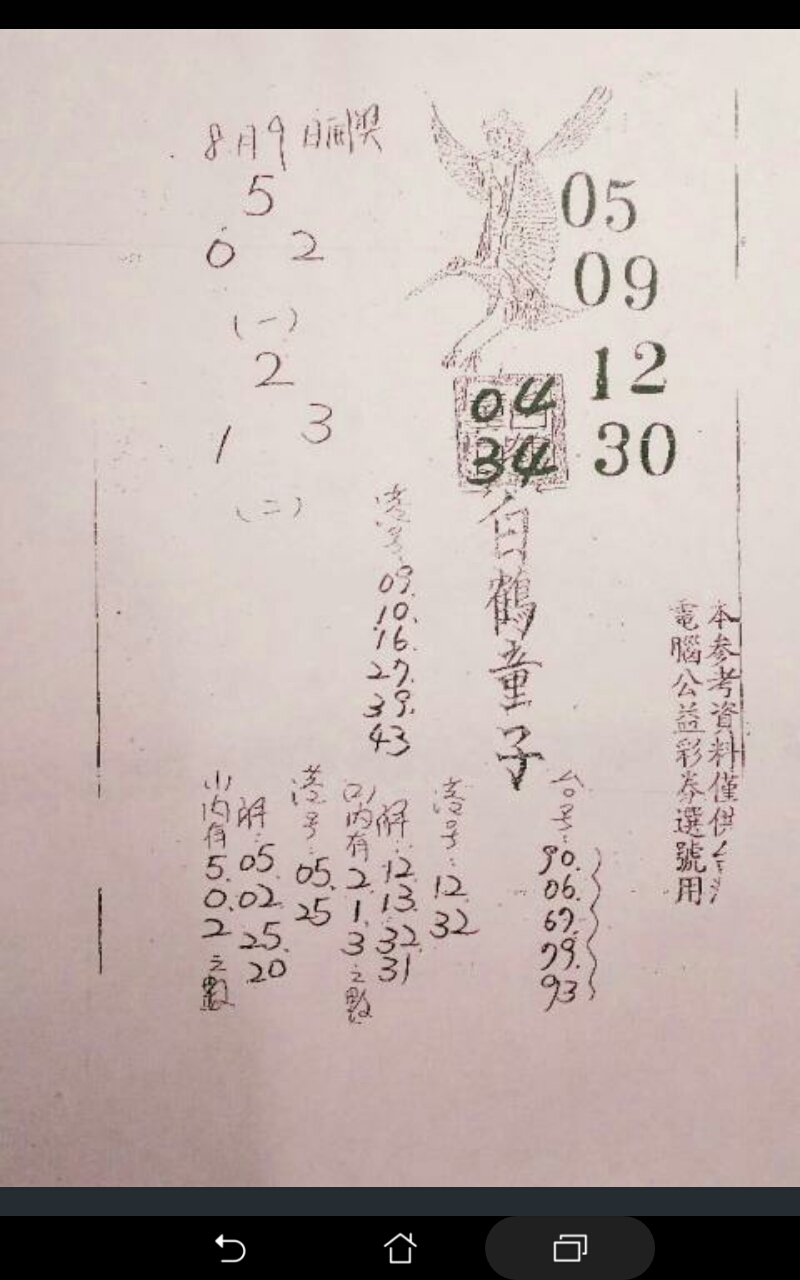 8月9日開獎
5
0 2
(一)
2
1 3
(二)
05
09
12
30
04
34
白鶴童子
本参考資料僅供
電腦公益彩券選號用
港号:
09.
10.
16.
27.
39.
43
台号:
90.
06.
67.
79.
93
港号:
12
32
解:
12.
13.
32.
31
(2)內有2.1.3之數
港号:
05.
25
解:
05.
02.
25.
20
內有5.0.2之數